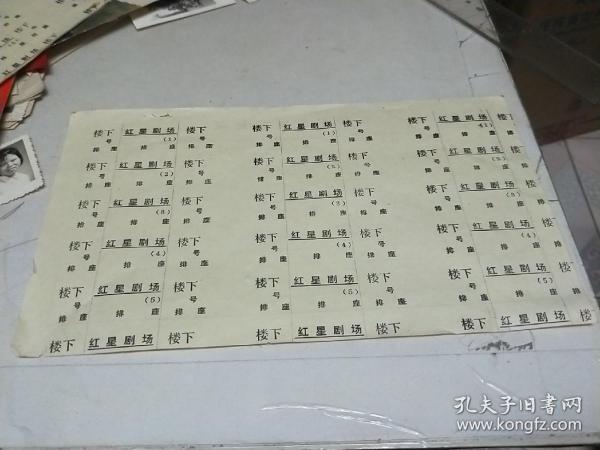 楼下 红星剧场 楼下 楼下 红星剧场 楼下 楼下 红星剧场 楼
号 (1) 号 号 (1) 号 号 (1)
排 座 排 座 排 座 排 座 排 座 排 座 排 座 排 座
楼下 红星剧场 楼下 楼下 红星剧场 楼下 楼下 红星剧场 楼
号 (2) 号 号 (2) 号 号 (2)
排 座 排 座 排 座 排 座 排 座 排 座 排 座 排 座
楼下 红星剧场 楼下 楼下 红星剧场 楼下 楼下 红星剧场 楼
号 (3) 号 号 (3) 号 号 (3)
排 座 排 座 排 座 排 座 排 座 排 座 排 座 排 座
楼下 红星剧场 楼下 楼下 红星剧场 楼下 楼下 红星剧场 楼
号 (4) 号 号 (4) 号 号 (4)
排 座 排 座 排 座 排 座 排 座 排 座 排 座 排 座
楼下 红星剧场 楼下 楼下 红星剧场 楼下 楼下 红星剧场 楼下
号 (5) 号 号 (5) 号 号 (5)
排 座 排 座 排 座 排 座 排 座 排 座 排 座 排 座 排
楼下 红星剧场 楼下 楼下 红星剧场 楼下 楼下 红星剧场 楼
孔夫子旧书网
www.kongfz.com